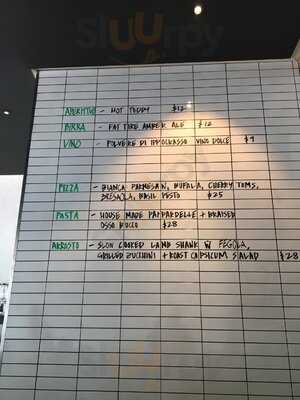 sluurpy
APERITIVO - HOT TODDY $12
BIRRA - FAT TIRE AMBER ALE $12
VINO - POLVERE DI VINO DOLCE $9
PIZZA - BIANCA PARMESAIN, BUFALA, CHERRY TOMS,
BRESAOLA, BASIL PESTO $25
PASTA - HOUSE MADE PAPPARDELLE + BRAISED
OSSO BUCCO $28
ARROSTO - SLOW COOKED LAMB SHANK W FREGOLA,
GRILLED ZUCCHINI + ROAST CAPSICUM SALAD $28